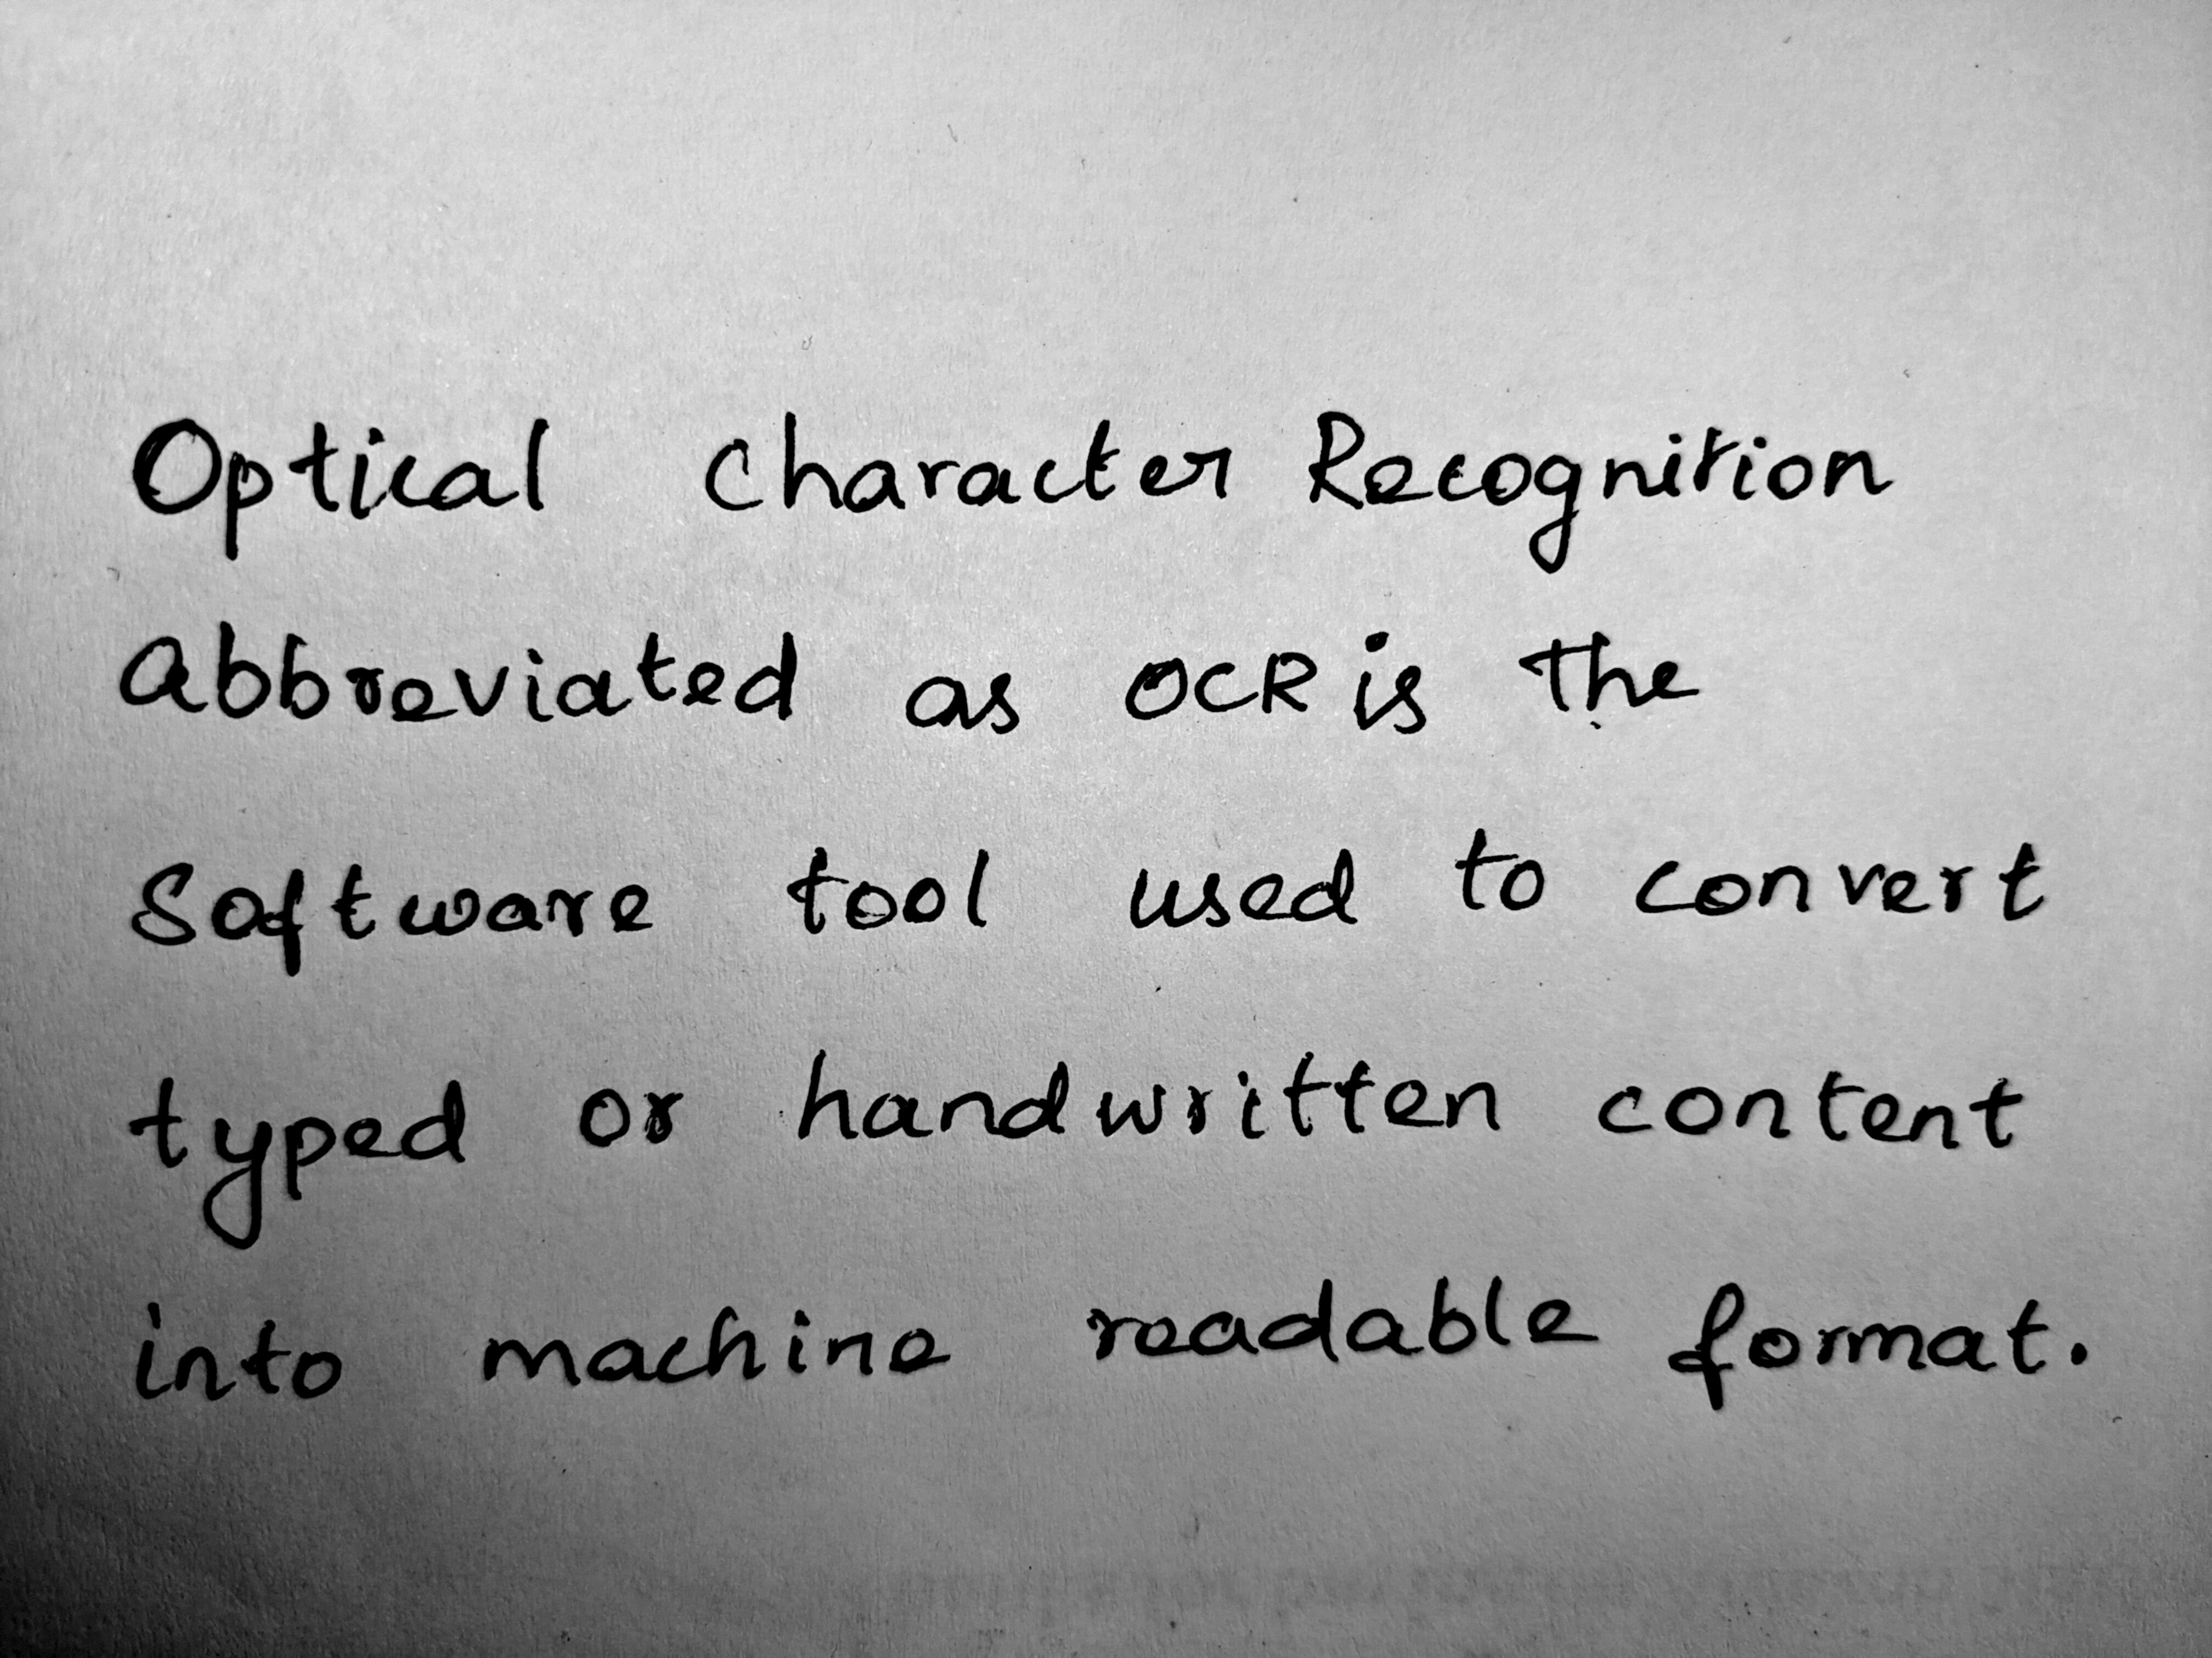 Optical Character Recognition
abbreviated as OCR is the
Software tool used to convert
typed or handwritten content
into machine readable format.